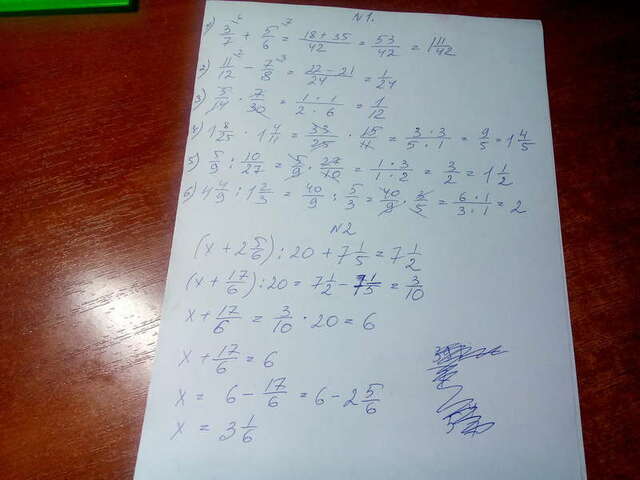 N1.
1) 3/7 + 5/6 = 18 + 35/42 = 53/42 = 1 11/42
2) 11/12 - 7/8 = 22 - 21/24 = 1/24
3) 5/14 · 7/30 = 1 · 1/2 · 6 = 1/12
4) 1 8/25 · 1 4/11 = 33/25 · 15/11 = 3 · 3/5 · 1 = 9/5 = 1 4/5
5) 5/9 : 10/27 = 5/9 · 27/10 = 1 · 3/1 · 2 = 3/2 = 1 1/2
6) 4 4/9 : 1 2/3 = 40/9 : 5/3 = 40/9 · 3/5 = 6 · 1/3 · 1 = 2
N2
(x + 2 5/6) : 20 + 7 1/5 = 7 1/2
(x + 17/6) : 20 = 7 1/2 - 7 1/5 = 3/10
x + 17/6 = 3/10 · 20 = 6
x + 17/6 = 6
x = 6 - 17/6 = 6 - 2 5/6
x = 3 1/6